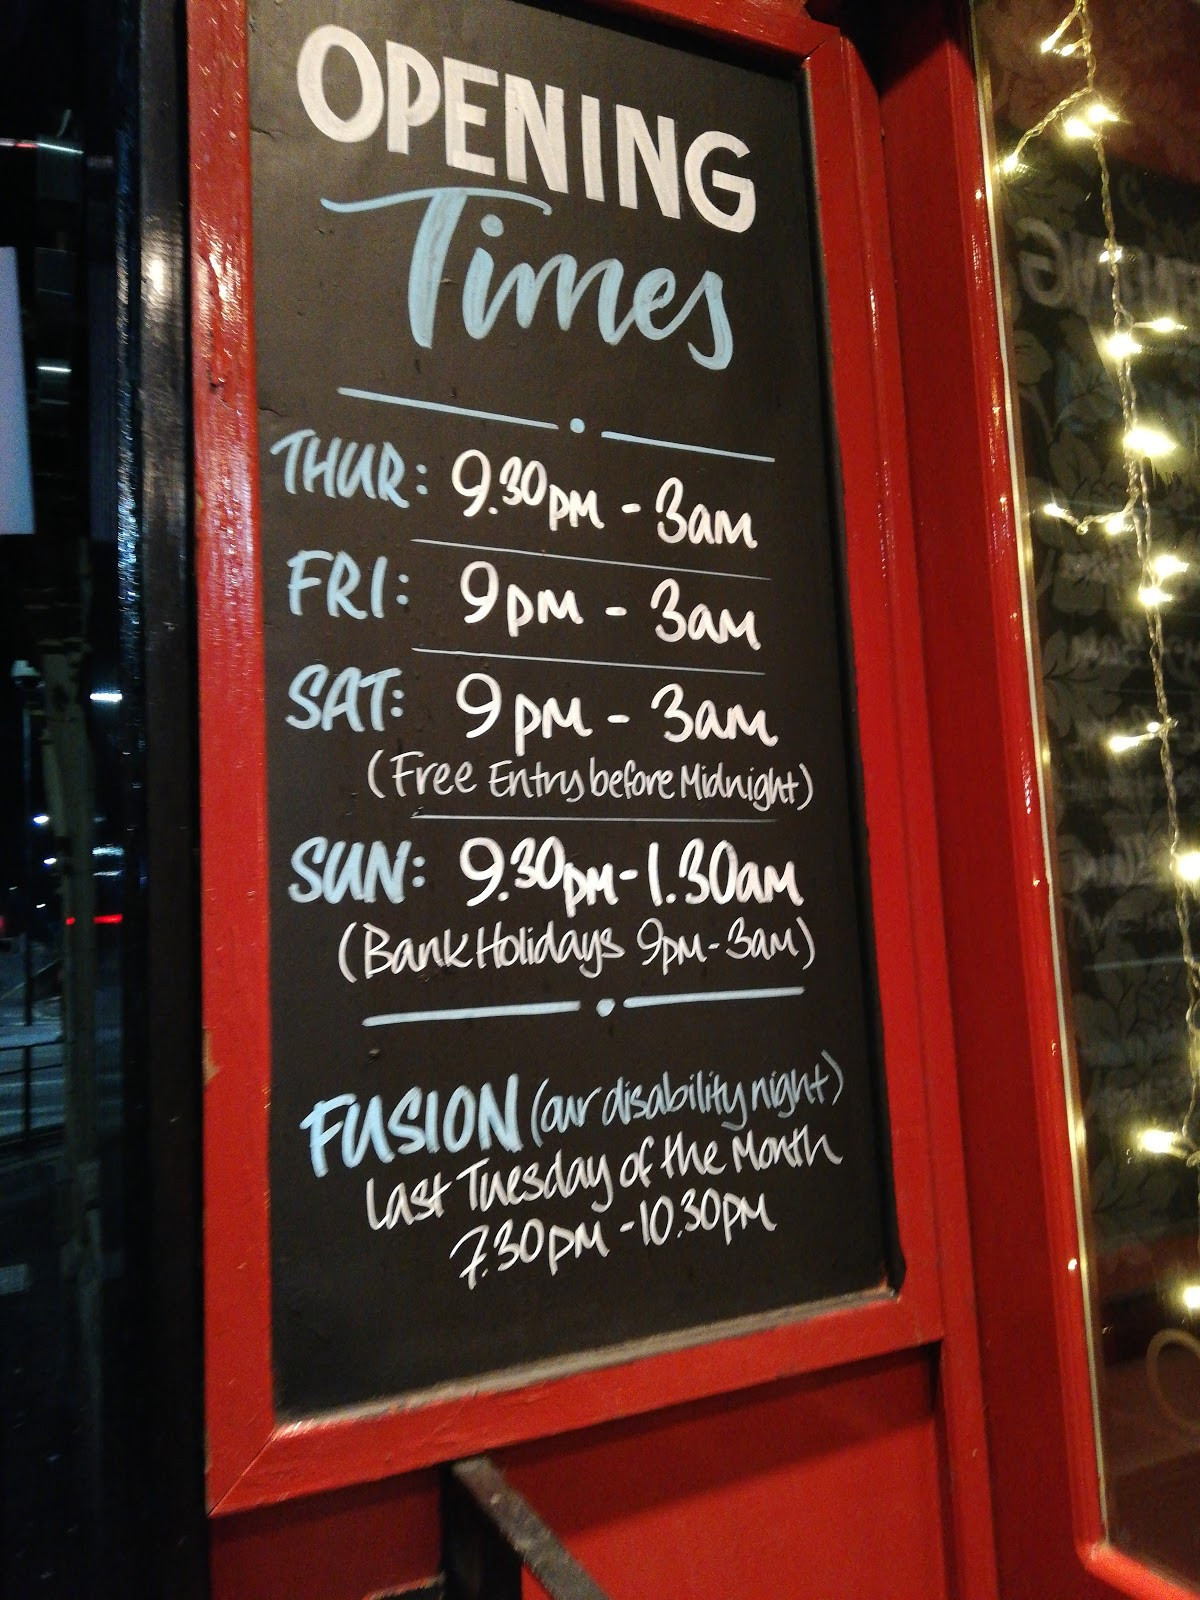 OPENING
Times
THUR: 9.30pm - 3am
FRI: 9pm - 3am
SAT: 9pm - 3am
(Free Entry before Midnight)
SUN: 9.30pm - 1.30am
(Bank Holidays 9pm - 3am)
FUSION (our disability night)
Last Tuesday of the Month
7.30pm - 10.30pm